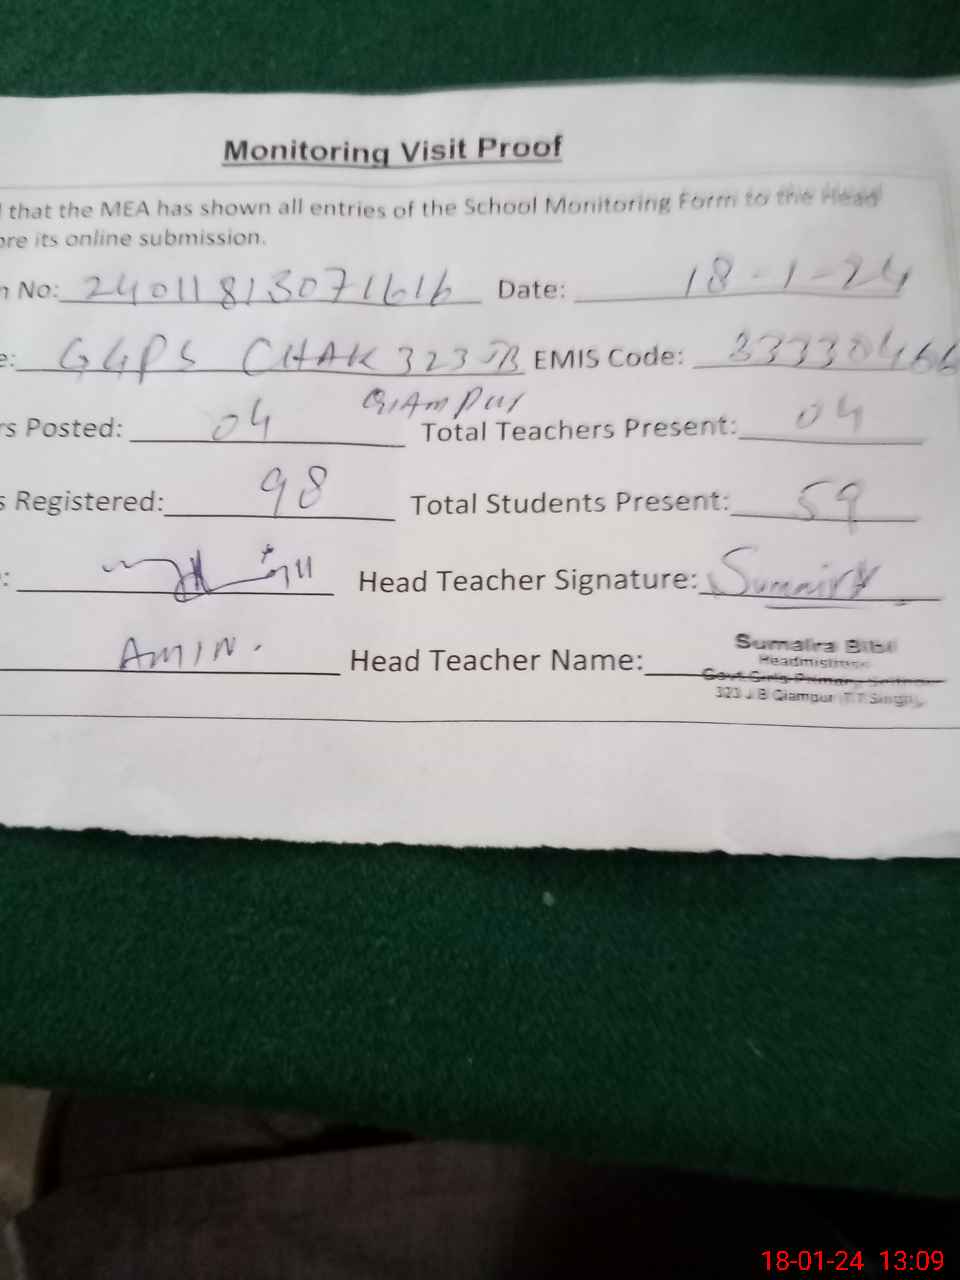 Monitoring Visit Proof
that the MEA has shown all entries of the School Monitoring Form to the Head
ore its online submission.
n No: 24011813071616 Date: 18-1-24
e: GGPS CHAK 323 JB EMIS Code: 33330466
GIAMPUR
rs Posted: 04 Total Teachers Present: 04
s Registered: 98 Total Students Present: 59
: Head Teacher Signature: Sumaira
AMIN. Head Teacher Name: Sumaira Bibi
Headmistress
Govt. Girls Primary School
323 J B Giampur (T.T.Singh)
18-01-24 13:09